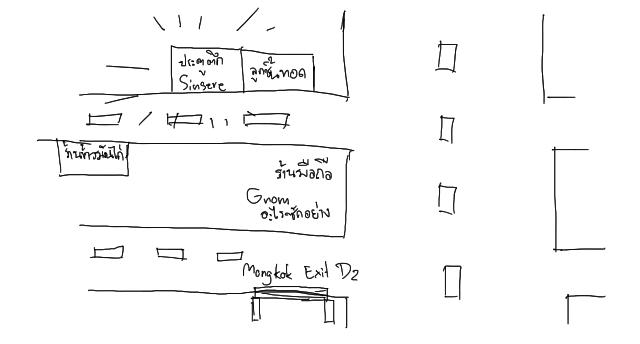 ประตูตึก
Sinsere
ลูกชิ้นทอด
ร้านข้าวมันไก่
ร้านมือถือ
Gnom
อะไรซักอย่าง
Mongkok Exit D2